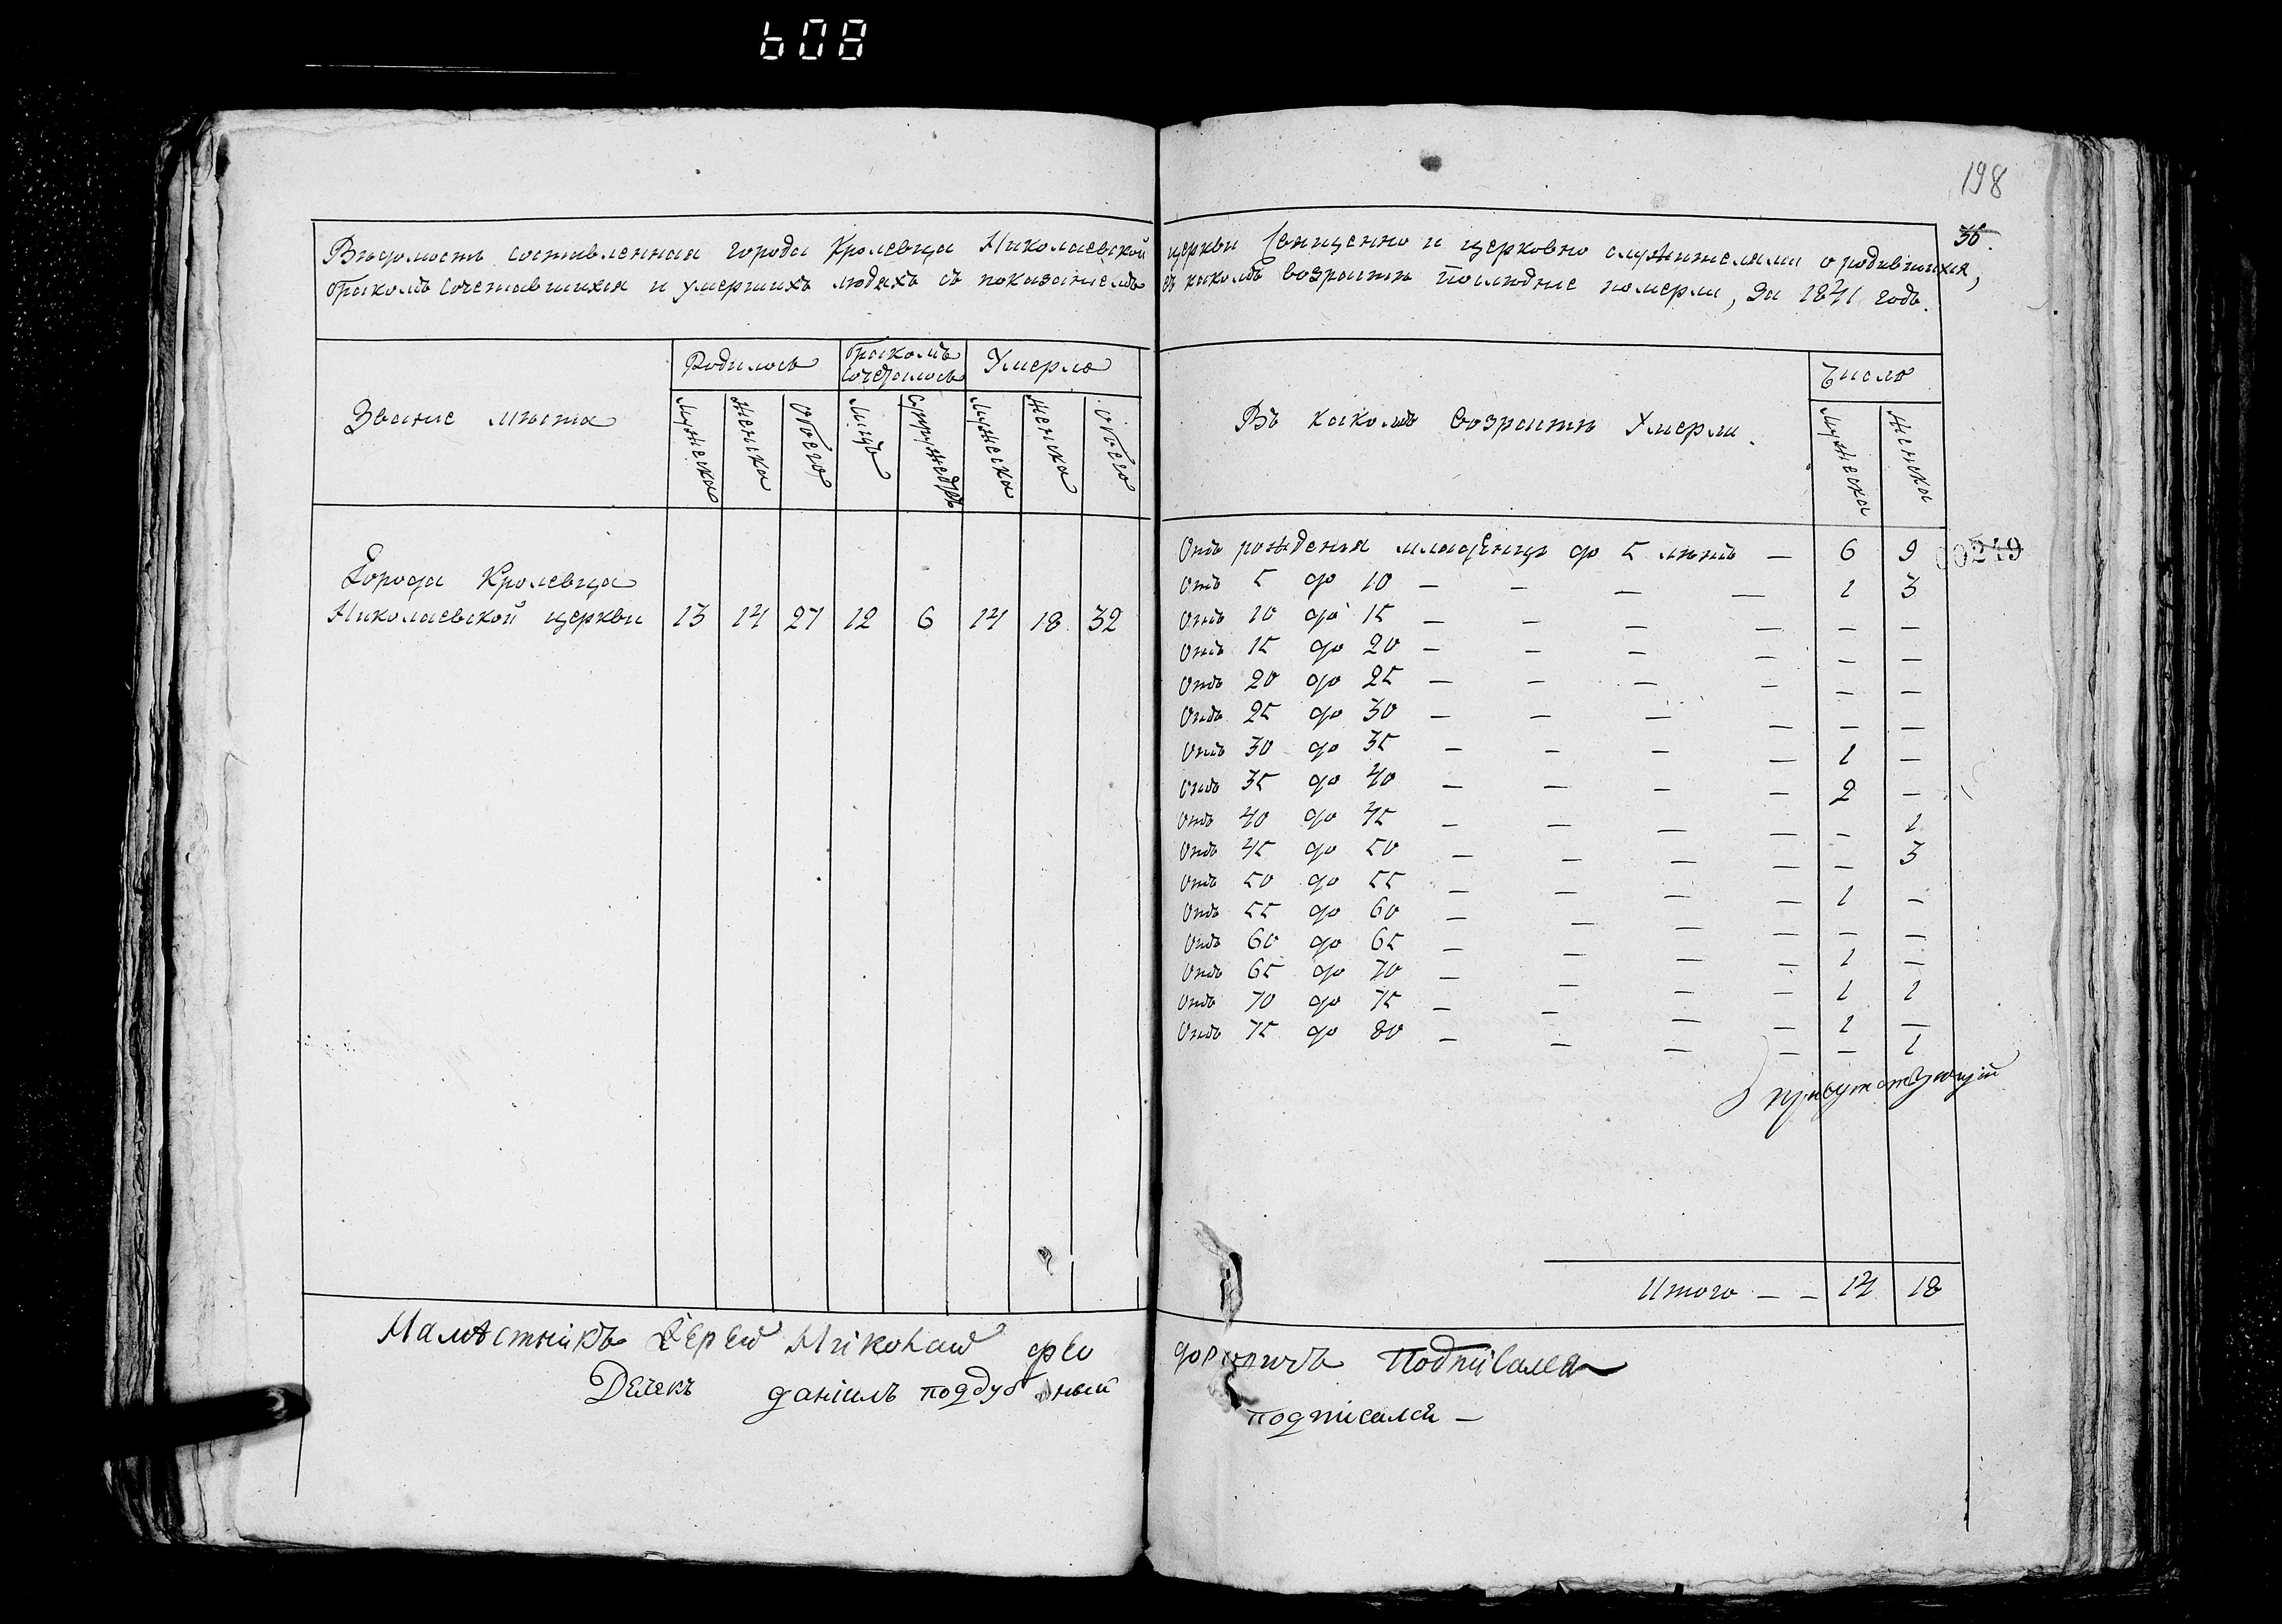 608
198
36.
Вѣдомость составленная города Кролевца Николаевской церкви Священно и церковно служителями о родившихся,
бракомъ сочетавшихся и умершихъ людяхъ съ показаніемъ въ какомъ возрастѣ послѣдніе померли, за 1841 годъ.
Званіе мѣста
Родилось
бракомъ сочеталось
Умерло
Мужеска
Женска
Обоего
Лицъ
Супружествъ
Мужеска
Женска
Обоего
Города Кролевца
Николаевской церкви 13 14 27 12 6 14 18 32
Въ какомъ возрастѣ Умерли.
Число
Мужеска
Женска
Отъ рожденія младенца до 5 лѣтъ — 6 9
00249
Отъ 5 до 10 — — — — 1 3
Отъ 10 до 15 — — — — — —
Отъ 15 до 20 — — — — — —
Отъ 20 до 25 — — — — — —
Отъ 25 до 30 — — — — — —
Отъ 30 до 35 — — — — 1 —
Отъ 35 до 40 — — — — 2 —
Отъ 40 до 45 — — — — — 1
Отъ 45 до 50 — — — — — 3
Отъ 50 до 55 — — — — 1 —
Отъ 55 до 60 — — — — — —
Отъ 60 до 65 — — — — 1 —
Отъ 65 до 70 — — — — 1 1
Отъ 70 до 75 — — — — 1 —
Отъ 75 до 80 — — — — — 1
присутствующій
Итого — — 14 18
Намѣстникъ Іерей Николай Подписался
Данiилъ Поддубный подписался —